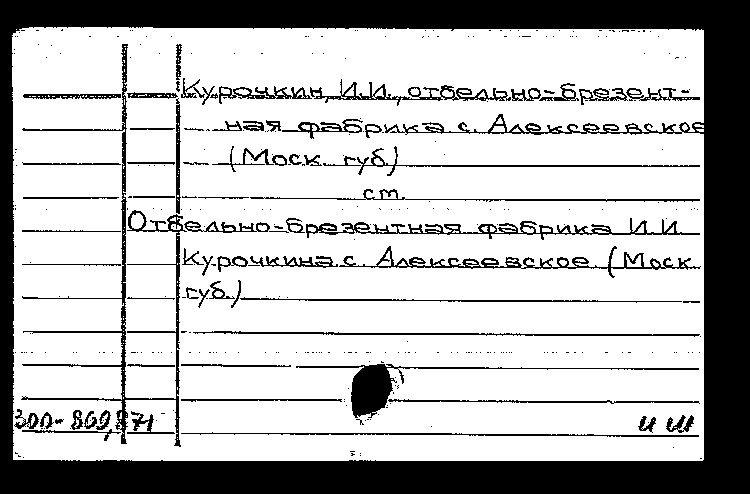 Курочкин, И.И., отбельно-брезент-
ная фабрика с. Алексеевское
(Моск. губ.)
ст.
Отбельно-брезентная фабрика И.И.
Курочкина с. Алексеевское (Моск.
губ.)
300-869,871
И Ш